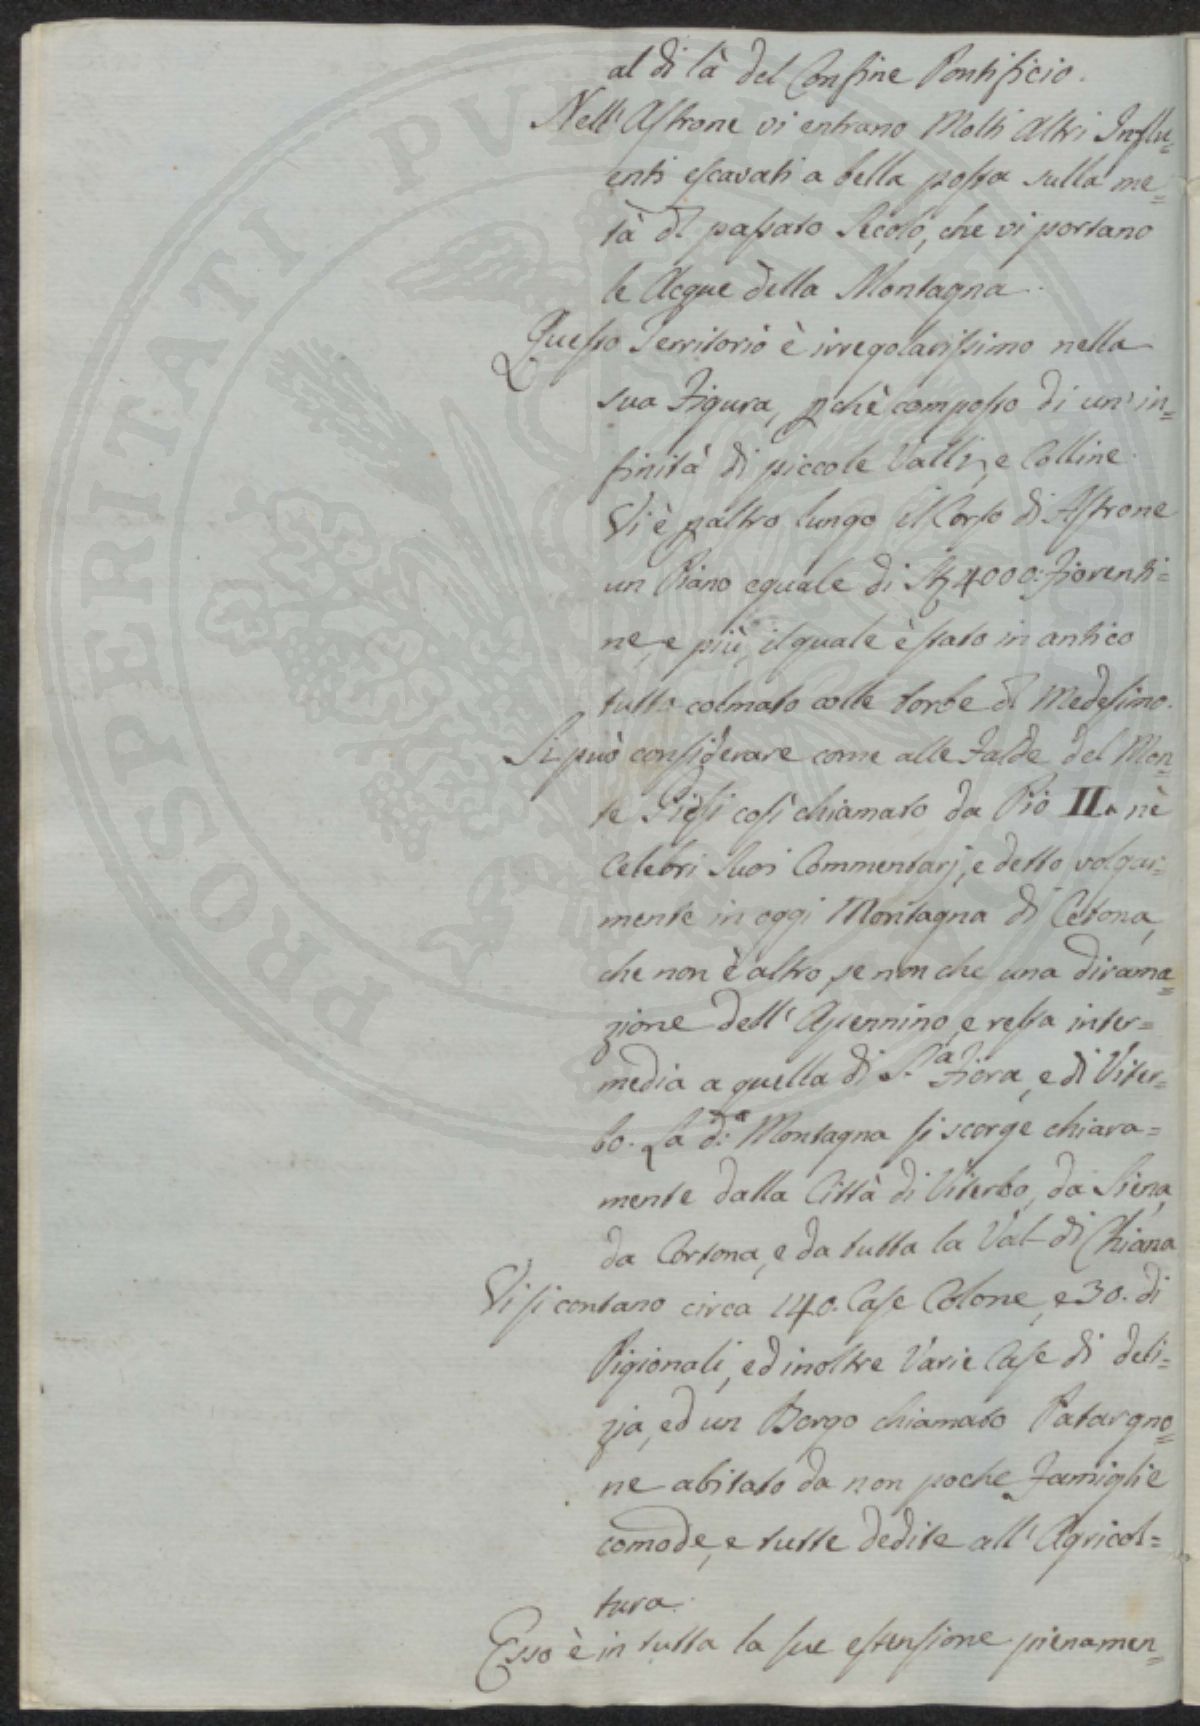 al di là del Confine Pontificio.
Nell' Astrone vi entrano Molti Altri Influ=
enti escavati a bella posta sulla me=
tà dl passato Secolo, che vi portano
le Acque della Montagna.
Questo Territorio è irregolarissimo nella
sua Figura, pchè composto di un' in=
finità di piccole Valli, e Colline.
Vi è paltro lungo il Corso di Astrone
un Piano eguale di St 4000: Fiorenti=
ne, e più, il quale è stato in antico
tutto colmato colle torbe dl Medesimo.
Si può considerare come alle Falde del Mon=
te così chiamato da Pio II. nè
Celebri Suoi Commentarj, e detto volgar=
mente in oggi Montagna di Cetona,
che non è altro, se non che una dirama=
zione dell' Apennino, e resta inter=
media a quella di S.ta Fiora, e di Viter=
bo. La d.a Montagna si scorge chiara=
mente dalla Città di Viterbo, da Siena,
da Cortona, e da tutta la Val di Chiana
Vi si contano circa 140. Case Colone, e 30. di
Pigionali, ed inoltre Varie Case di deli=
zia, ed un Borgo chiamato Patargno=
ne abitato da non poche Famiglie
comode, e tutte dedite all' Agricol=
tura.
Esso è in tutta la sue estensione pienamen=
PROSPERITATI PVBLICAE